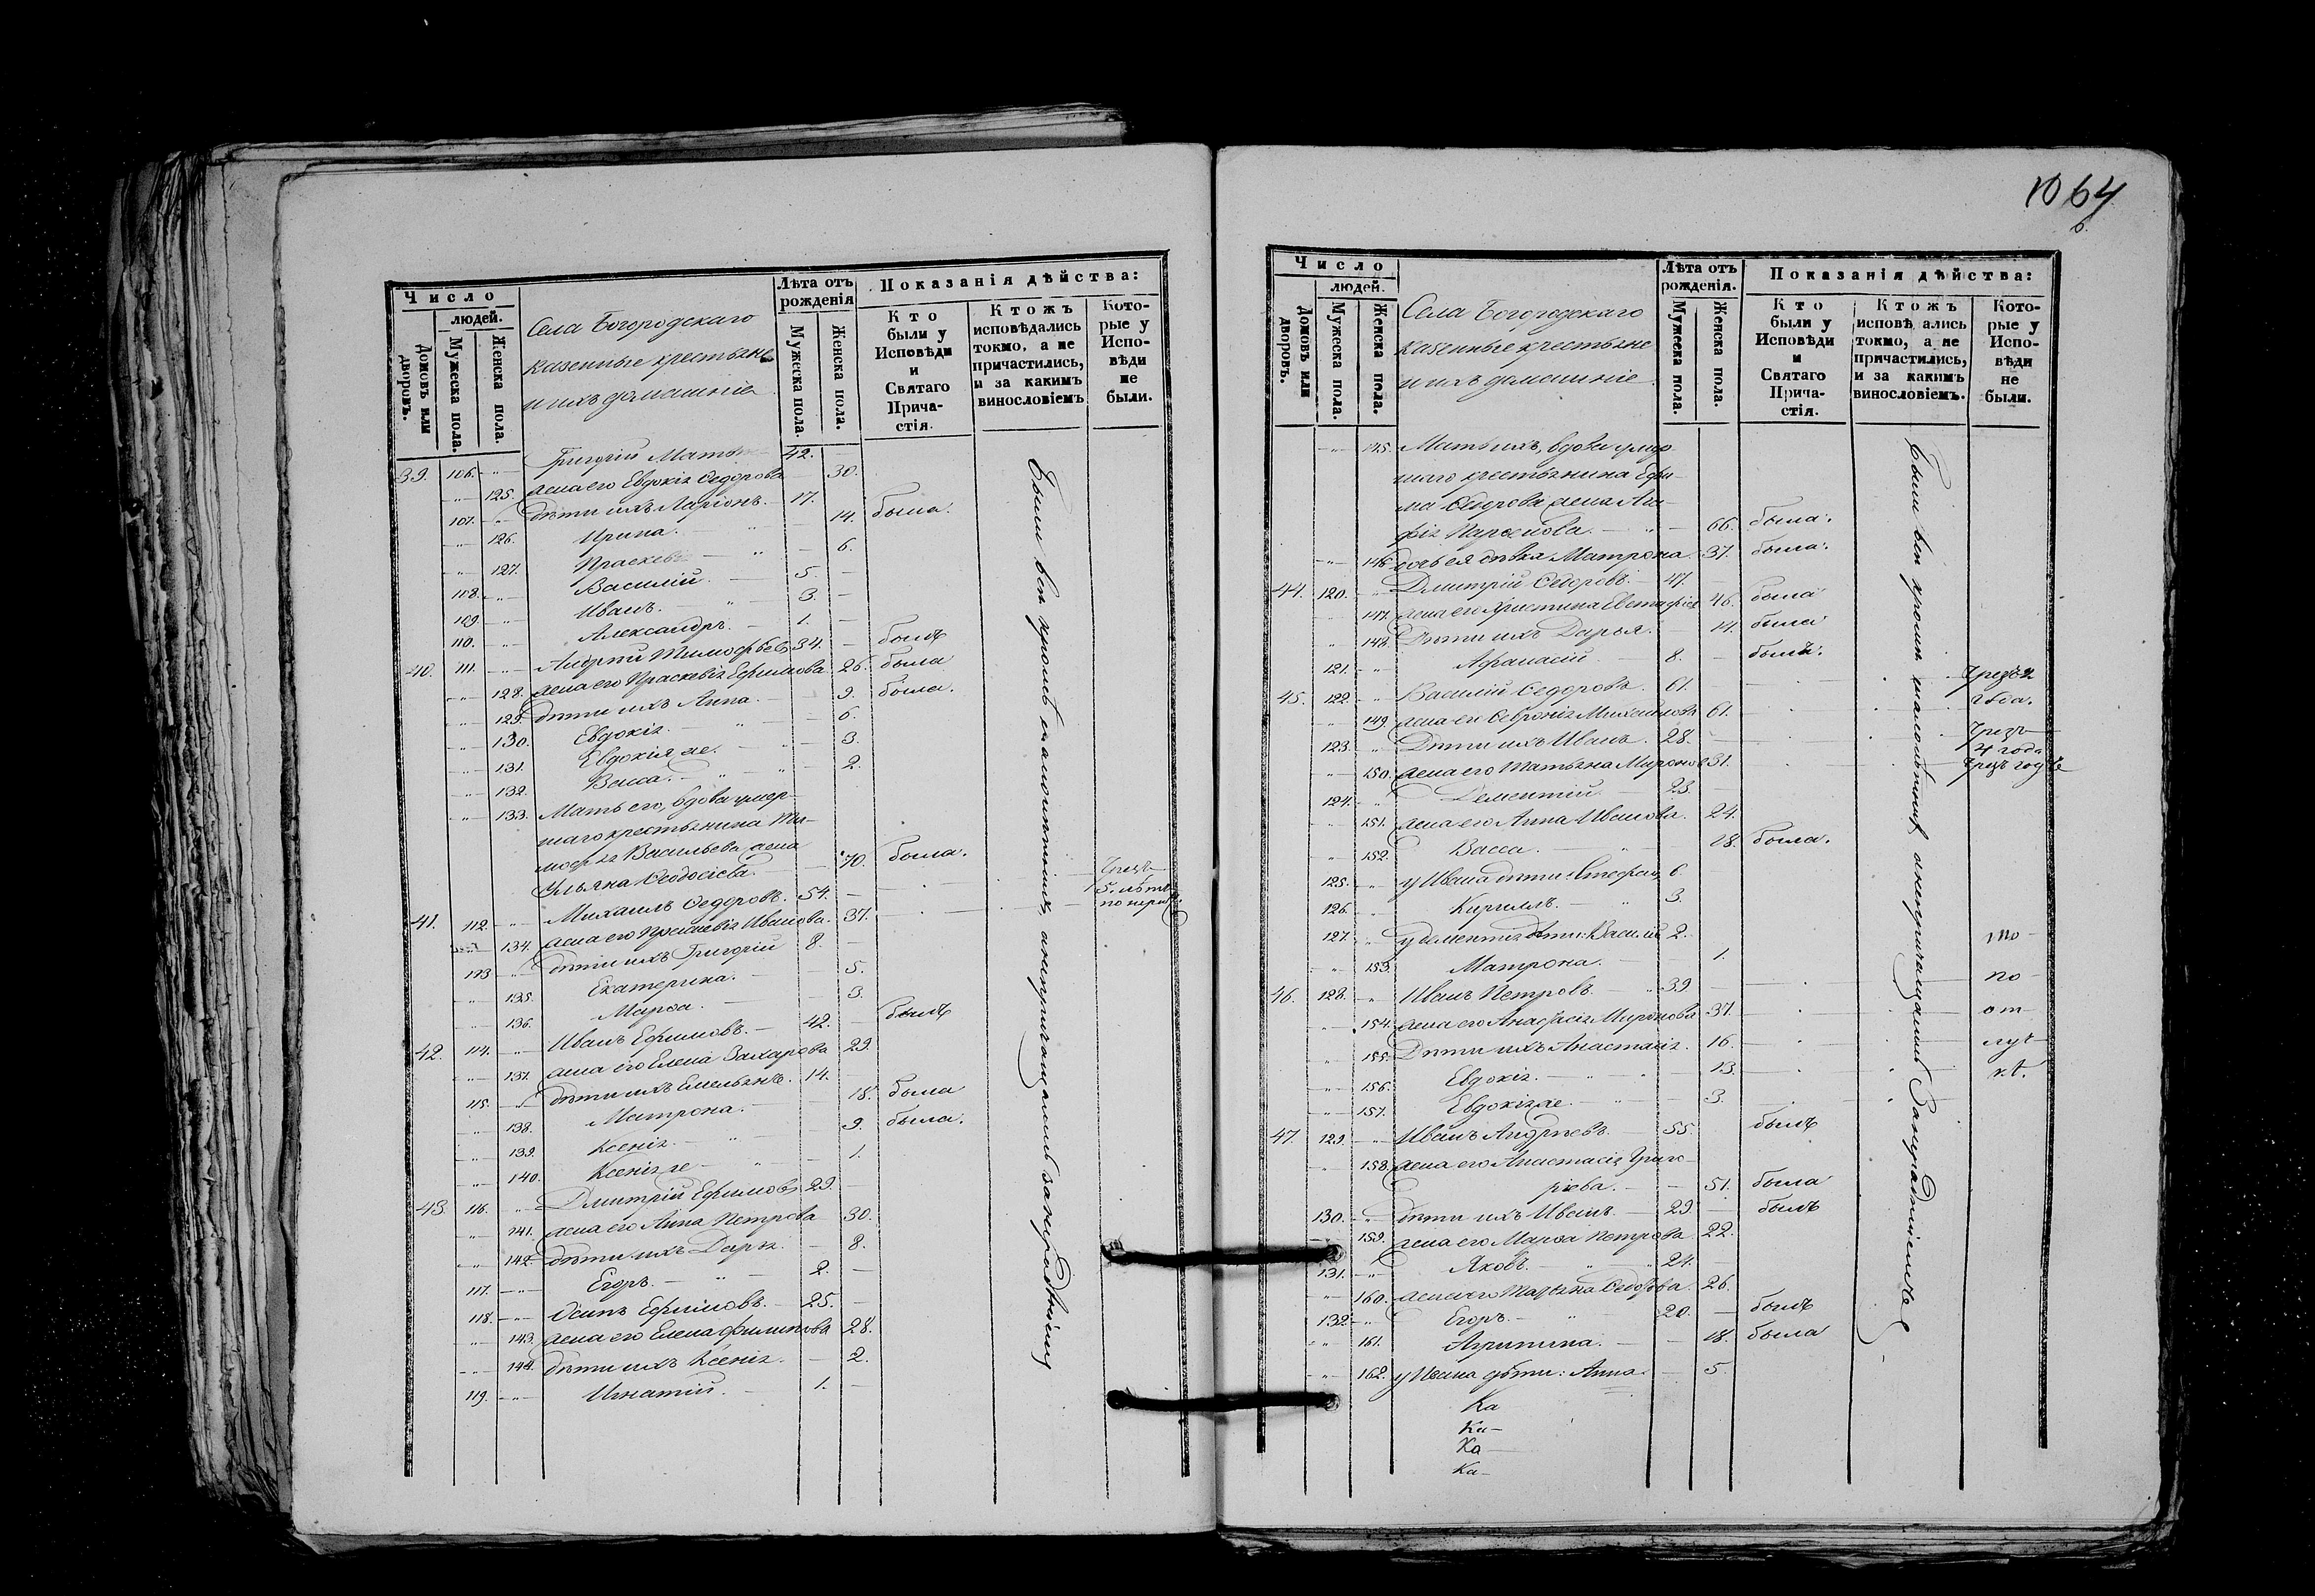 Число
людей.
Домовъ или дворовъ.
Мужеска пола.
Женска пола.
Села Богородскаго
казенные крестьяне
и ихъ домашніе
Лѣта отъ рожденія
Мужеска пола.
Женска пола.
Показанія дѣйства:
Кто были у Исповѣди и Святаго Прича-стія.
Ктожъ исповѣдались токмо, а не причастились, и за какимъ винословіемъ
Кото-рые у Испо-вѣди не были.
39. 106. Григорій 42.
125. жена его Евдокія Ѳедорова 30.
107. дѣти ихъ Ларіонъ. 17.
126. Ирина. 14. была.
127. 6.
108. Василій. 5.
109. Иванъ. 3.
110. Александръ. 1.
40. 111. Андрей Тимофѣевъ 34. былъ
128. жена его Праскевія Ефимова 26. была
129. дѣти ихъ Анна. 9. была.
130. Евдокія. 6.
131. Евдокія же. 3.
132. Васса. 2.
133. Мать его, вдова умер-
шаго крестьянина Ти-
мофея Васильева жена
Ульяна Ѳеодосіева 70. была.
41. 112. Михаилъ Ѳедоровъ. 54.
134. жена его Праскевія Иванова. 37.
113 дѣти ихъ Григорій 8.
135. Екатерина. 5.
136. Марѳа. 3.
42. 114. Иванъ Ефимовъ. 42. былъ
137. жена его Елена Захарова 29.
115. дѣти ихъ Емельянъ. 14.
138. Матрона. 18. была
139. Ксенія. 9. была.
140. Ксенія же 1.
43. 116. Дмитрій Ефимовъ 29.
141. жена его Анна Петрова 30.
142. дѣти ихъ Дарья. 8.
117. Егоръ. 2.
118. Осипъ Ефимовъ. 25.
143. жена его Елена Филипова 28.
144. дѣти ихъ Ксенія. 2.
119. Игнатій. 1.
Были всѣ кромѣ малолѣтнихъ,
1064
Число
людей.
Домовъ или дворовъ.
Мужеска пола.
Женска пола.
Села Богородскаго
казенные крестьяне
и ихъ домашніе
Лѣта отъ рожденія.
Мужеска пола.
Женска пола.
Показанія дѣйства:
Кто были у Исповѣди и Святаго Прича-стія.
Ктожъ исповѣ ались токмо, а не причастились, и за какимъ винословіемъ.
Кото-рые у Испо-вѣди не были.
145. Мать ихъ, вдова умер-
шаго крестьянина Ефи-
ма Ѳедорова жена Ага-
фія Парѳенова. 66. была.
146 дочь ея дѣвка Матрона. 37. была.
44. 120. Дмитрій Ѳедоровъ. 47.
147. жена его Христина Евстафіева 46. была
148. Дѣти ихъ Дарья. 14. была
121. Афанасій 8. былъ.
45. 122. Василій Ѳедоровъ. 61. Чрезъ 2
149 жена его Ѳевронія Михайлова 61. года.
123. Дѣти ихъ Иванъ. 28. Чрезъ
4 года
150. жена его Татьяна Миронова 31.
124. Дементій. 23.
151. жена его Анна Иванова. 24.
152. Васса. 18. была.
125. у Ивана дѣти: Стефанъ 6.
126. Кириллъ. 3.
127. у Дементія дѣти: Василій 2.
153. Матрона. 1.
46. 128. Иванъ Петровъ. 39 по
154. жена его Анастасія Миронова 37. от
155. Дѣти ихъ Анастасія. 16.
156. Евдокія. 13.
157. Евдокія же. 3.
47. 129. Иванъ Андреевъ. 55. былъ
158. жена его Анастасія Григо-
ріева. 51. была
130. дѣти ихъ Иванъ. 29. былъ
159. жена его Марѳа Петрова 22.
131. Яковъ. 24.
160. жена его Марьяна Ѳедорова. 26.
132 Егоръ. 20. былъ
161. Агрипина. 18. была
162. у Ивана дѣти: Анна. 5.
Ка
Ка-
Ка
Ка-
Были всѣ кромѣ малолѣтнихъ,